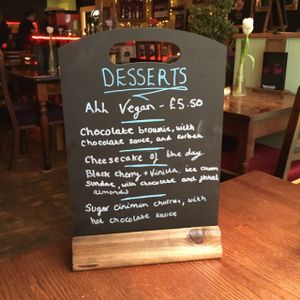 DESSERTS
All Vegan - £5.50
Chocolate brownie, with
chocolate sauce, and sorbet
Cheesecake of the day
Black cherry + Vanilla ice cream
Sundae, with chocolate and
almonds
Sugar cinimon churros, with
hot chocolate sauce